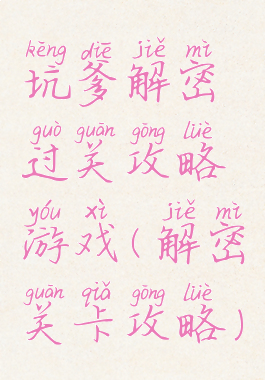 kēng diē jiě mì
坑爹解密
guò guān gōng lüè
过关攻略
yóu xì jiě mì
游戏(解密
guān qiǎ gōng lüè
关卡攻略)